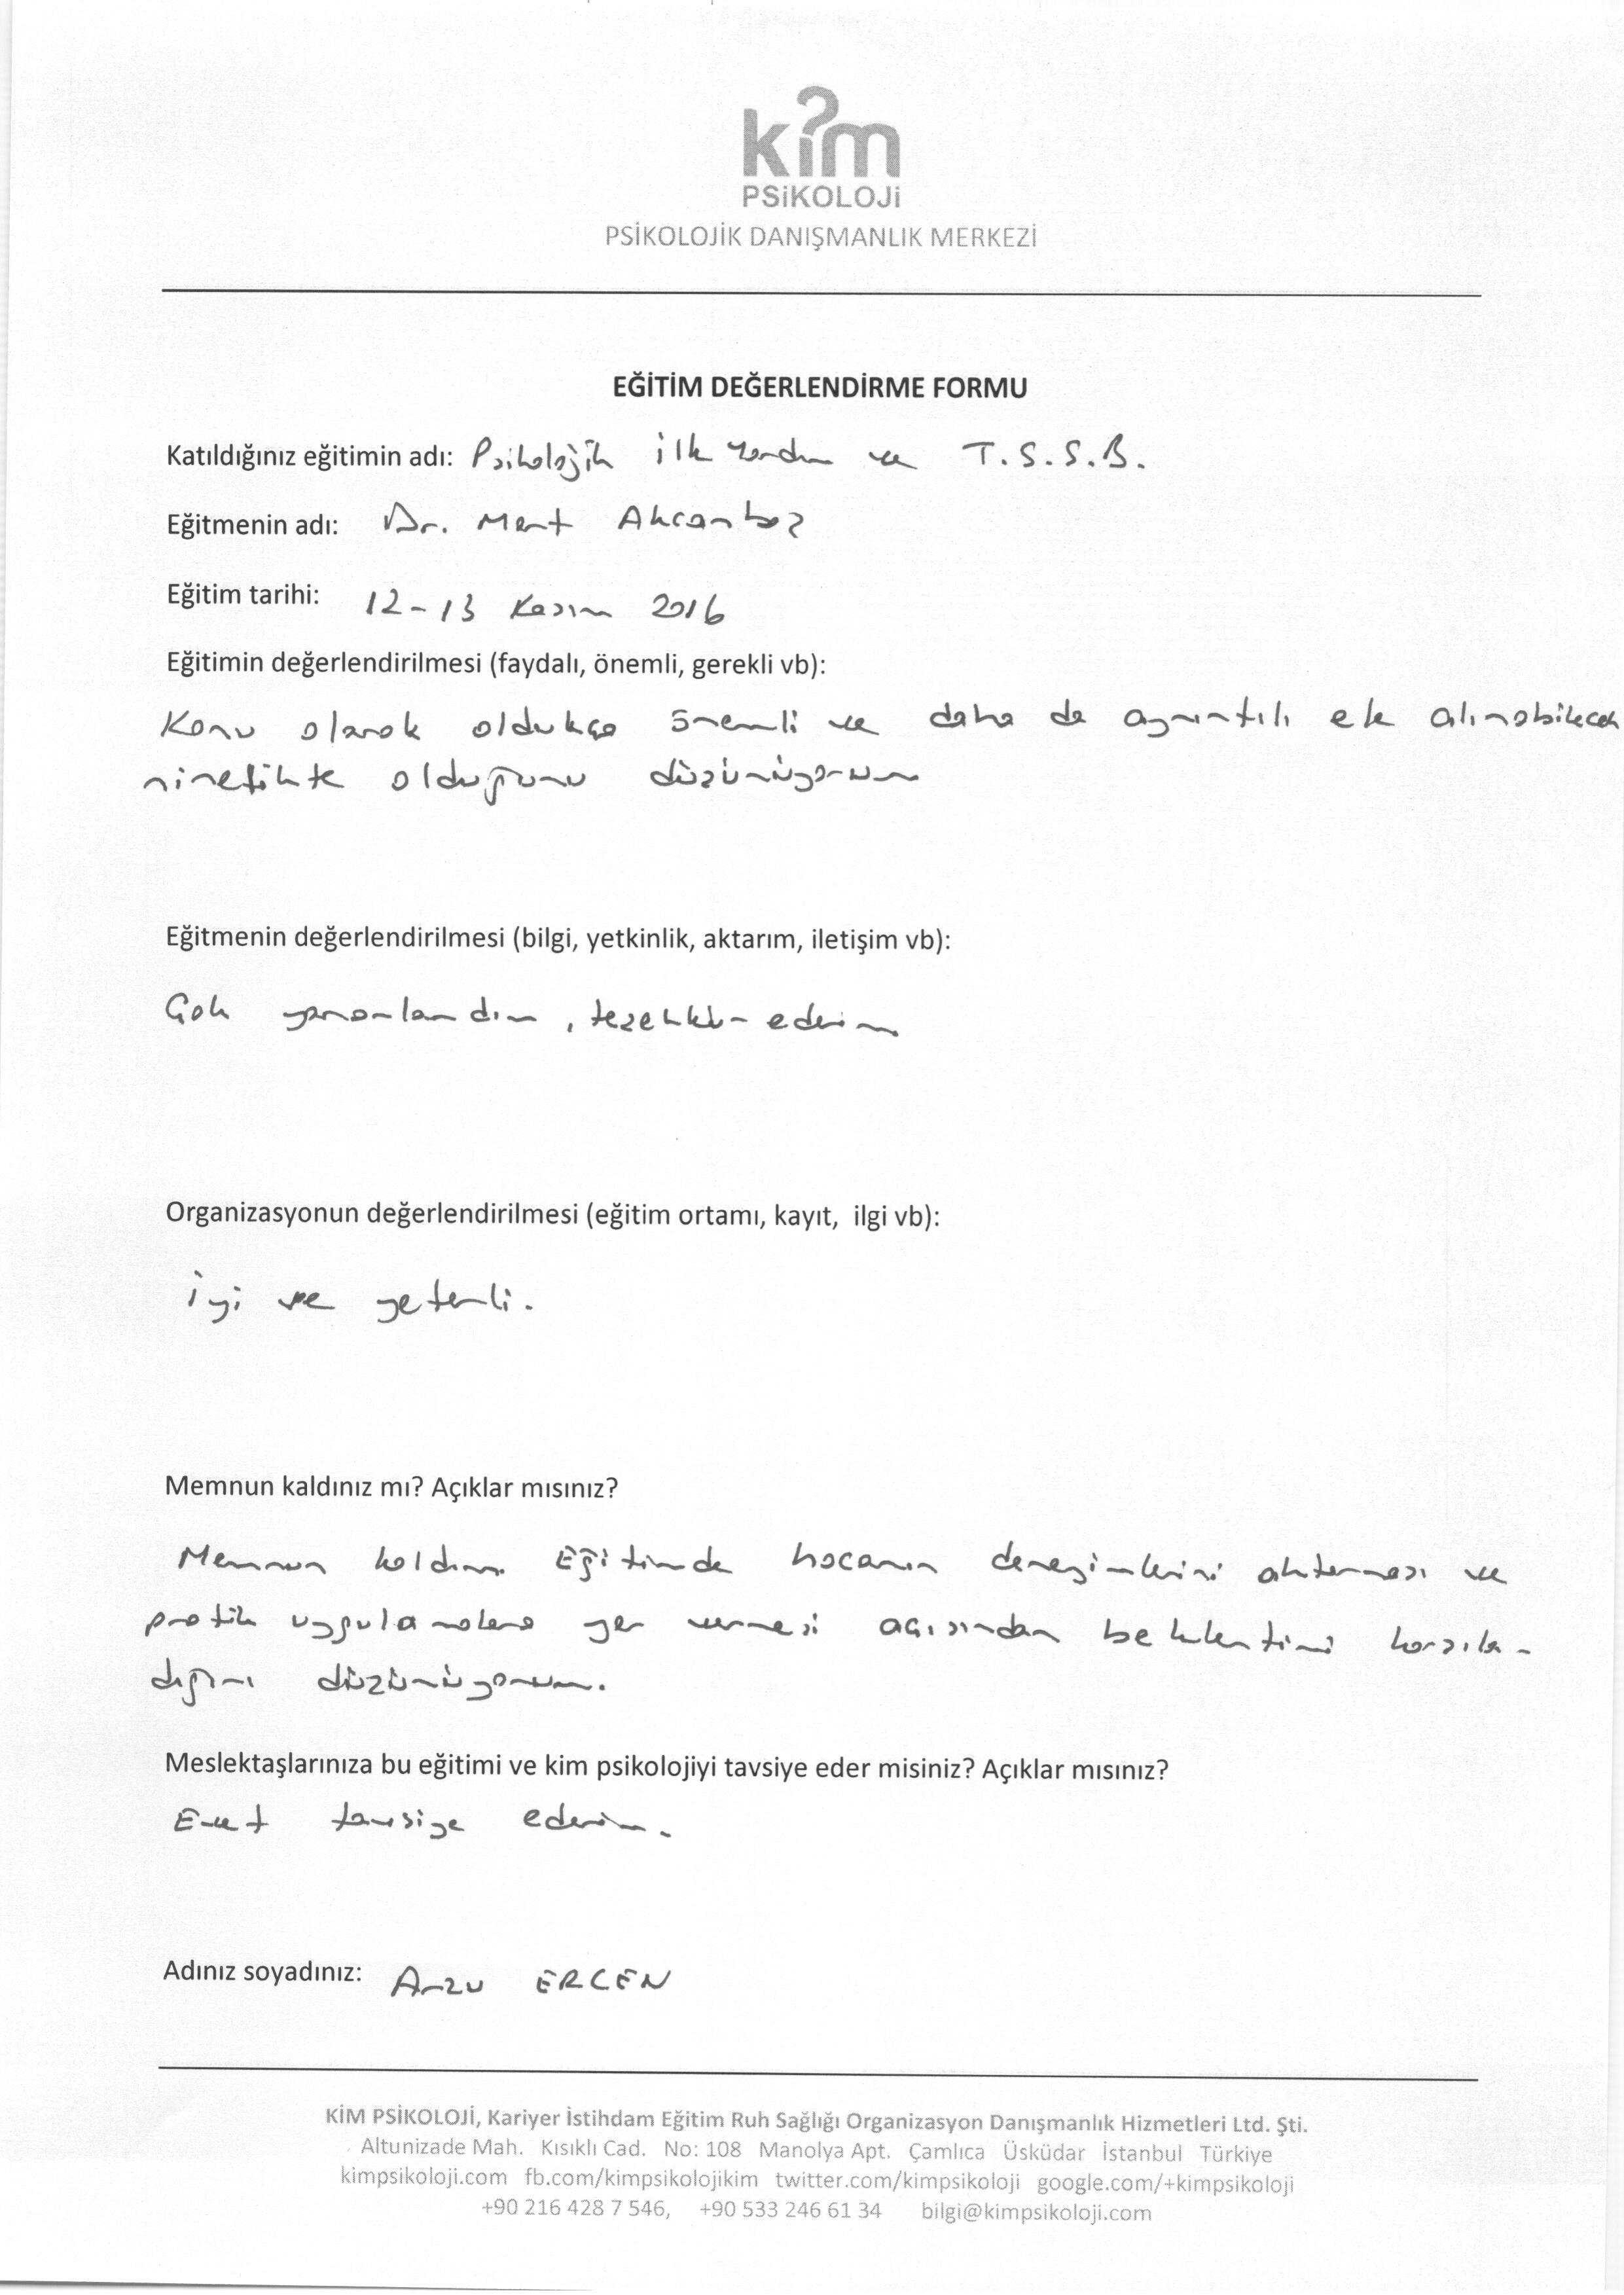 kim
PSiKOLOJi
PSİKOLOJİK DANIŞMANLIK MERKEZİ
EĞİTİM DEĞERLENDİRME FORMU
Katıldığınız eğitimin adı: Psikolojik ilk yardım ve T.S.S.B.
Eğitmenin adı: Dr. Mert Akcanbaş
Eğitim tarihi: 12-13 Kasım 2016
Eğitimin değerlendirilmesi (faydalı, önemli, gerekli vb):
Konu olarak oldukça önemli ve daha da ayrıntılı ele alınabilecek
nitelikte olduğunu düşünüyorum
Eğitmenin değerlendirilmesi (bilgi, yetkinlik, aktarım, iletişim vb):
Çok yararlandım, teşekkür ederim
Organizasyonun değerlendirilmesi (eğitim ortamı, kayıt, ilgi vb):
İyi ve yeterli.
Memnun kaldınız mı? Açıklar mısınız?
Memnun kaldım. Eğitimde hocanın deneyimlerini aktarması ve
pratik uygulamalara yer vermesi açısından beklentimi karşıla-
dığını düşünüyorum.
Meslektaşlarınıza bu eğitimi ve kim psikolojiyi tavsiye eder misiniz? Açıklar mısınız?
Evet tavsiye ederim.
Adınız soyadınız: Arzu ERCEN
KİM PSİKOLOJİ, Kariyer İstihdam Eğitim Ruh Sağlığı Organizasyon Danışmanlık Hizmetleri Ltd. Şti.
Altunizade Mah. Kısıklı Cad. No: 108 Manolya Apt. Çamlıca Üsküdar İstanbul Türkiye
kimpsikoloji.com fb.com/kimpsikolojikim twitter.com/kimpsikoloji google.com/+kimpsikoloji
+90 216 428 7 546, +90 533 246 61 34 bilgi@kimpsikoloji.com